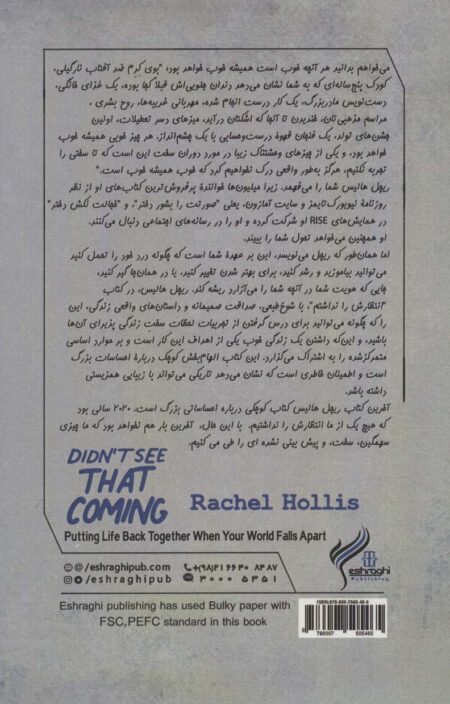 می‌خواهم بدانید هر آنچه خوب است همیشه خوب خواهد بود: "بوی کرم ضد آفتاب نارگیلی،
کودک پنج‌ساله‌ای که به شما نشان می‌دهد دندان جلویی‌اش قبلا کجا بوده، یک غذای خانگی،
دست‌نویس مادربزرگ، یک کار درست انجام شده، مهربانی غریبه‌ها، روح بشری،
مراسم مذهبی‌تان، خندیدن تا آنجا که اشکتان درآید، میزهای سحر تعطیلات، اولین
جشن‌های تولد، یک فنجان قهوهٔ درست‌وحسابی با یک چشم‌انداز. هر چیز خوبی همیشه خوب
خواهد بود، و یکی از چیزهای وحشتناک زیبا در مورد دوران سخت این است که تا سختی را
تجربه نکنیم، هرگز به‌طور واقعی درک نخواهیم کرد که خوب همیشه خوب است."
ریچل هالیس شما را می‌فهمد. زیرا میلیون‌ها خوانندهٔ پرفروش‌ترین کتاب‌های او از نظر
روزنامهٔ نیویورک‌تایمز و سایت آمازون، یعنی "صورتت را بشور دختر"، و "خجالت نکش دختر"
در همایش‌های RISE او شرکت کرده و او را در رسانه‌های اجتماعی دنبال می‌کنند.
او همچنین می‌خواهد تحول شما را ببیند.
اما همان‌طور که ریچل می‌نویسد، این بر عهدهٔ شما است که چگونه درد خود را تحمل کنید
می‌توانید بیاموزید و رشد کنید، برای بهتر شدن تغییر کنید، یا در همان‌جا گیر کنید،
جایی که هویت شما در آنچه شما را می‌آزارد ریشه کند. ریچل هالیس، در کتاب
"انتظارش را نداشتم"، با شوخ‌طبعی، صداقت صمیمانه و داستان‌های واقعی زندگی، این
را که چگونه می‌توانید برای درس گرفتن از تجربیات لحظات سخت زندگی پذیرای آن‌ها
باشید، و این‌که داشتن یک زندگی خوب یکی از اهداف این کار است و بر موارد اساسی
متمرکزشده را به اشتراک می‌گذارد. این کتاب الهام‌بخش کوچک دربارهٔ احساسات بزرگ
است و اطمینان خاطری است که نشان می‌دهد تاریکی می‌تواند با زیبایی همزیستی
داشته باشد.
آخرین کتاب ریچل هالیس کتاب کوچکی درباره احساساتی بزرگ است. ۲۰۲۰ سالی بود
که هیچ یک از ما انتظارش را نداشتیم. با این حال، آخرین بار هم نخواهد بود که ما چیزی
سهمگین، سخت، و پیش بینی نشده ای را طی می کنیم.
DIDN'T SEE
THAT
COMING
Rachel Hollis
Putting Life Back Together When Your World Falls Apart
@/eshraghipub.com
+(98)21 6640 8487
/eshraghipub
3000 5351
eshraghi
Publishing
Eshraghi publishing has used Bulky paper with
FSC,PEFC standard in this book